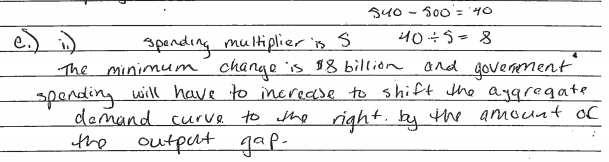 540 - 500 = 40
e.) i.) spending multiplier is 5 40 ÷ 5 = 8
The minimum change is $8 billion and goverment
spending will have to increase to shift the aggregate
demand curve to the right. by the amount of
the output gap.